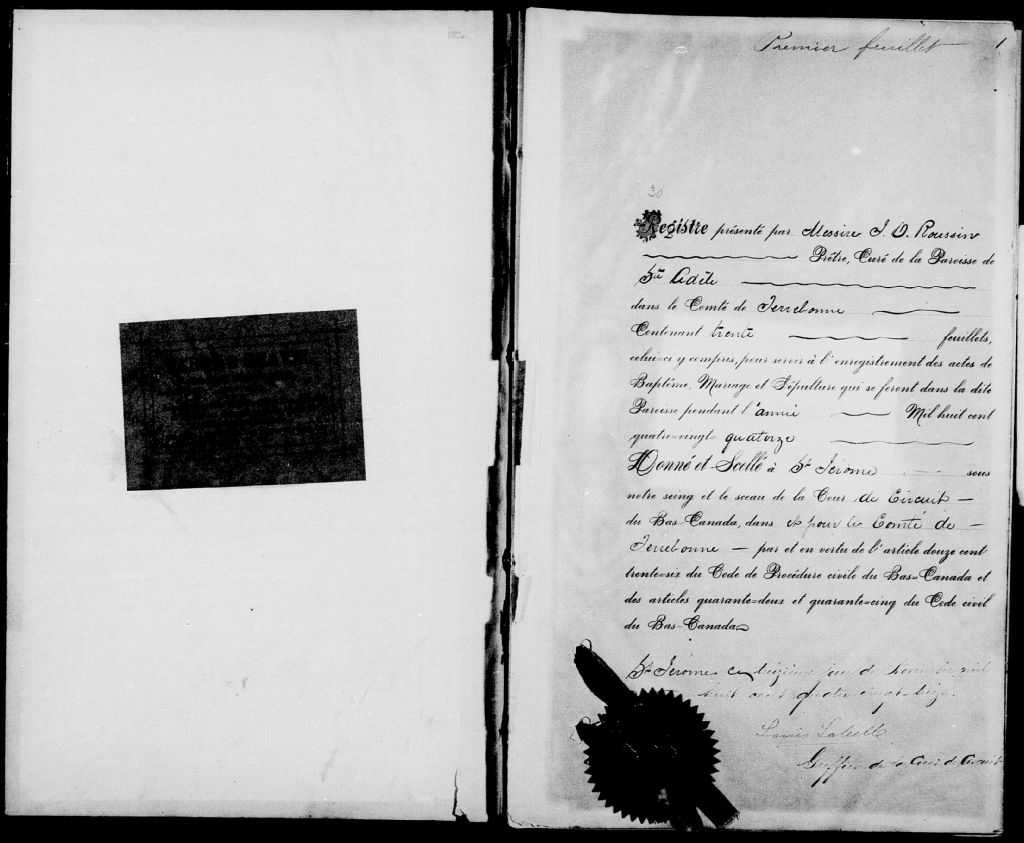 Premier feuillet 1
30
Registre présenté par Messire J. O. Roussin
Prêtre, Curé de la Paroisse de
Ste Adèle
dans le Comté de Terrebonne
Contenant trente feuillets,
celui-ci y compris, pour servir à l'enregistrement des actes de
Baptême, Mariage et Sépulture qui se feront dans la dite
Paroisse pendant l'année Mil huit cent
quatre-vingt quatorze
Donné et Scellé à St Jérome sous
notre seing et le sceau de la Cour de Circuit
du Bas-Canada, dans et pour le Comté de
Terrebonne par et en vertu de l'article douze cent
trente-six du Code de Procédure civile du Bas-Canada et
des articles quarante-deux et quarante-cinq du Code civil
du Bas-Canada
St Jérome ce jour de mil
huit cent quatre vingt treize.
Louis Labelle
Greffier de la Cour de Circuit